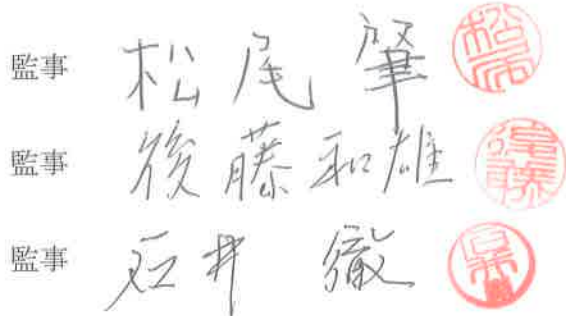 監事 松尾肇 松尾
監事 後藤和雄 後藤
監事 石井 徹 石井